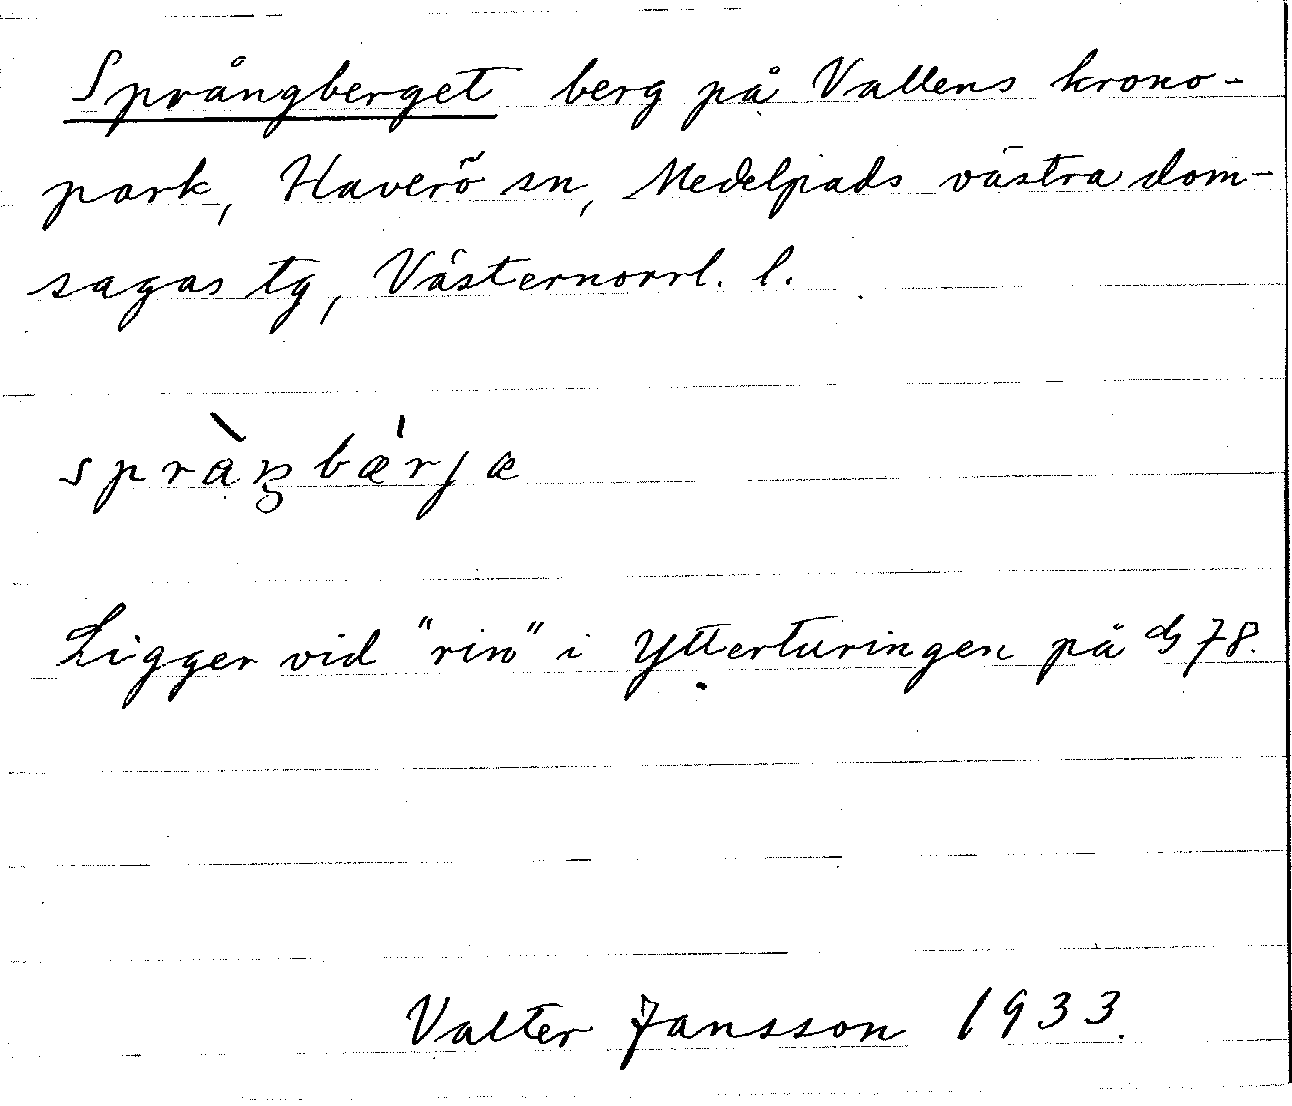 Språngberget berg på Vallens krono-
park, Haverö sn, Medelpads västra dom-
sagas tg, Västernorrl. l.
spràŋbærjæ
Ligger vid "rin" i Ytterturingen på G 78.
Valter Jansson 1933.